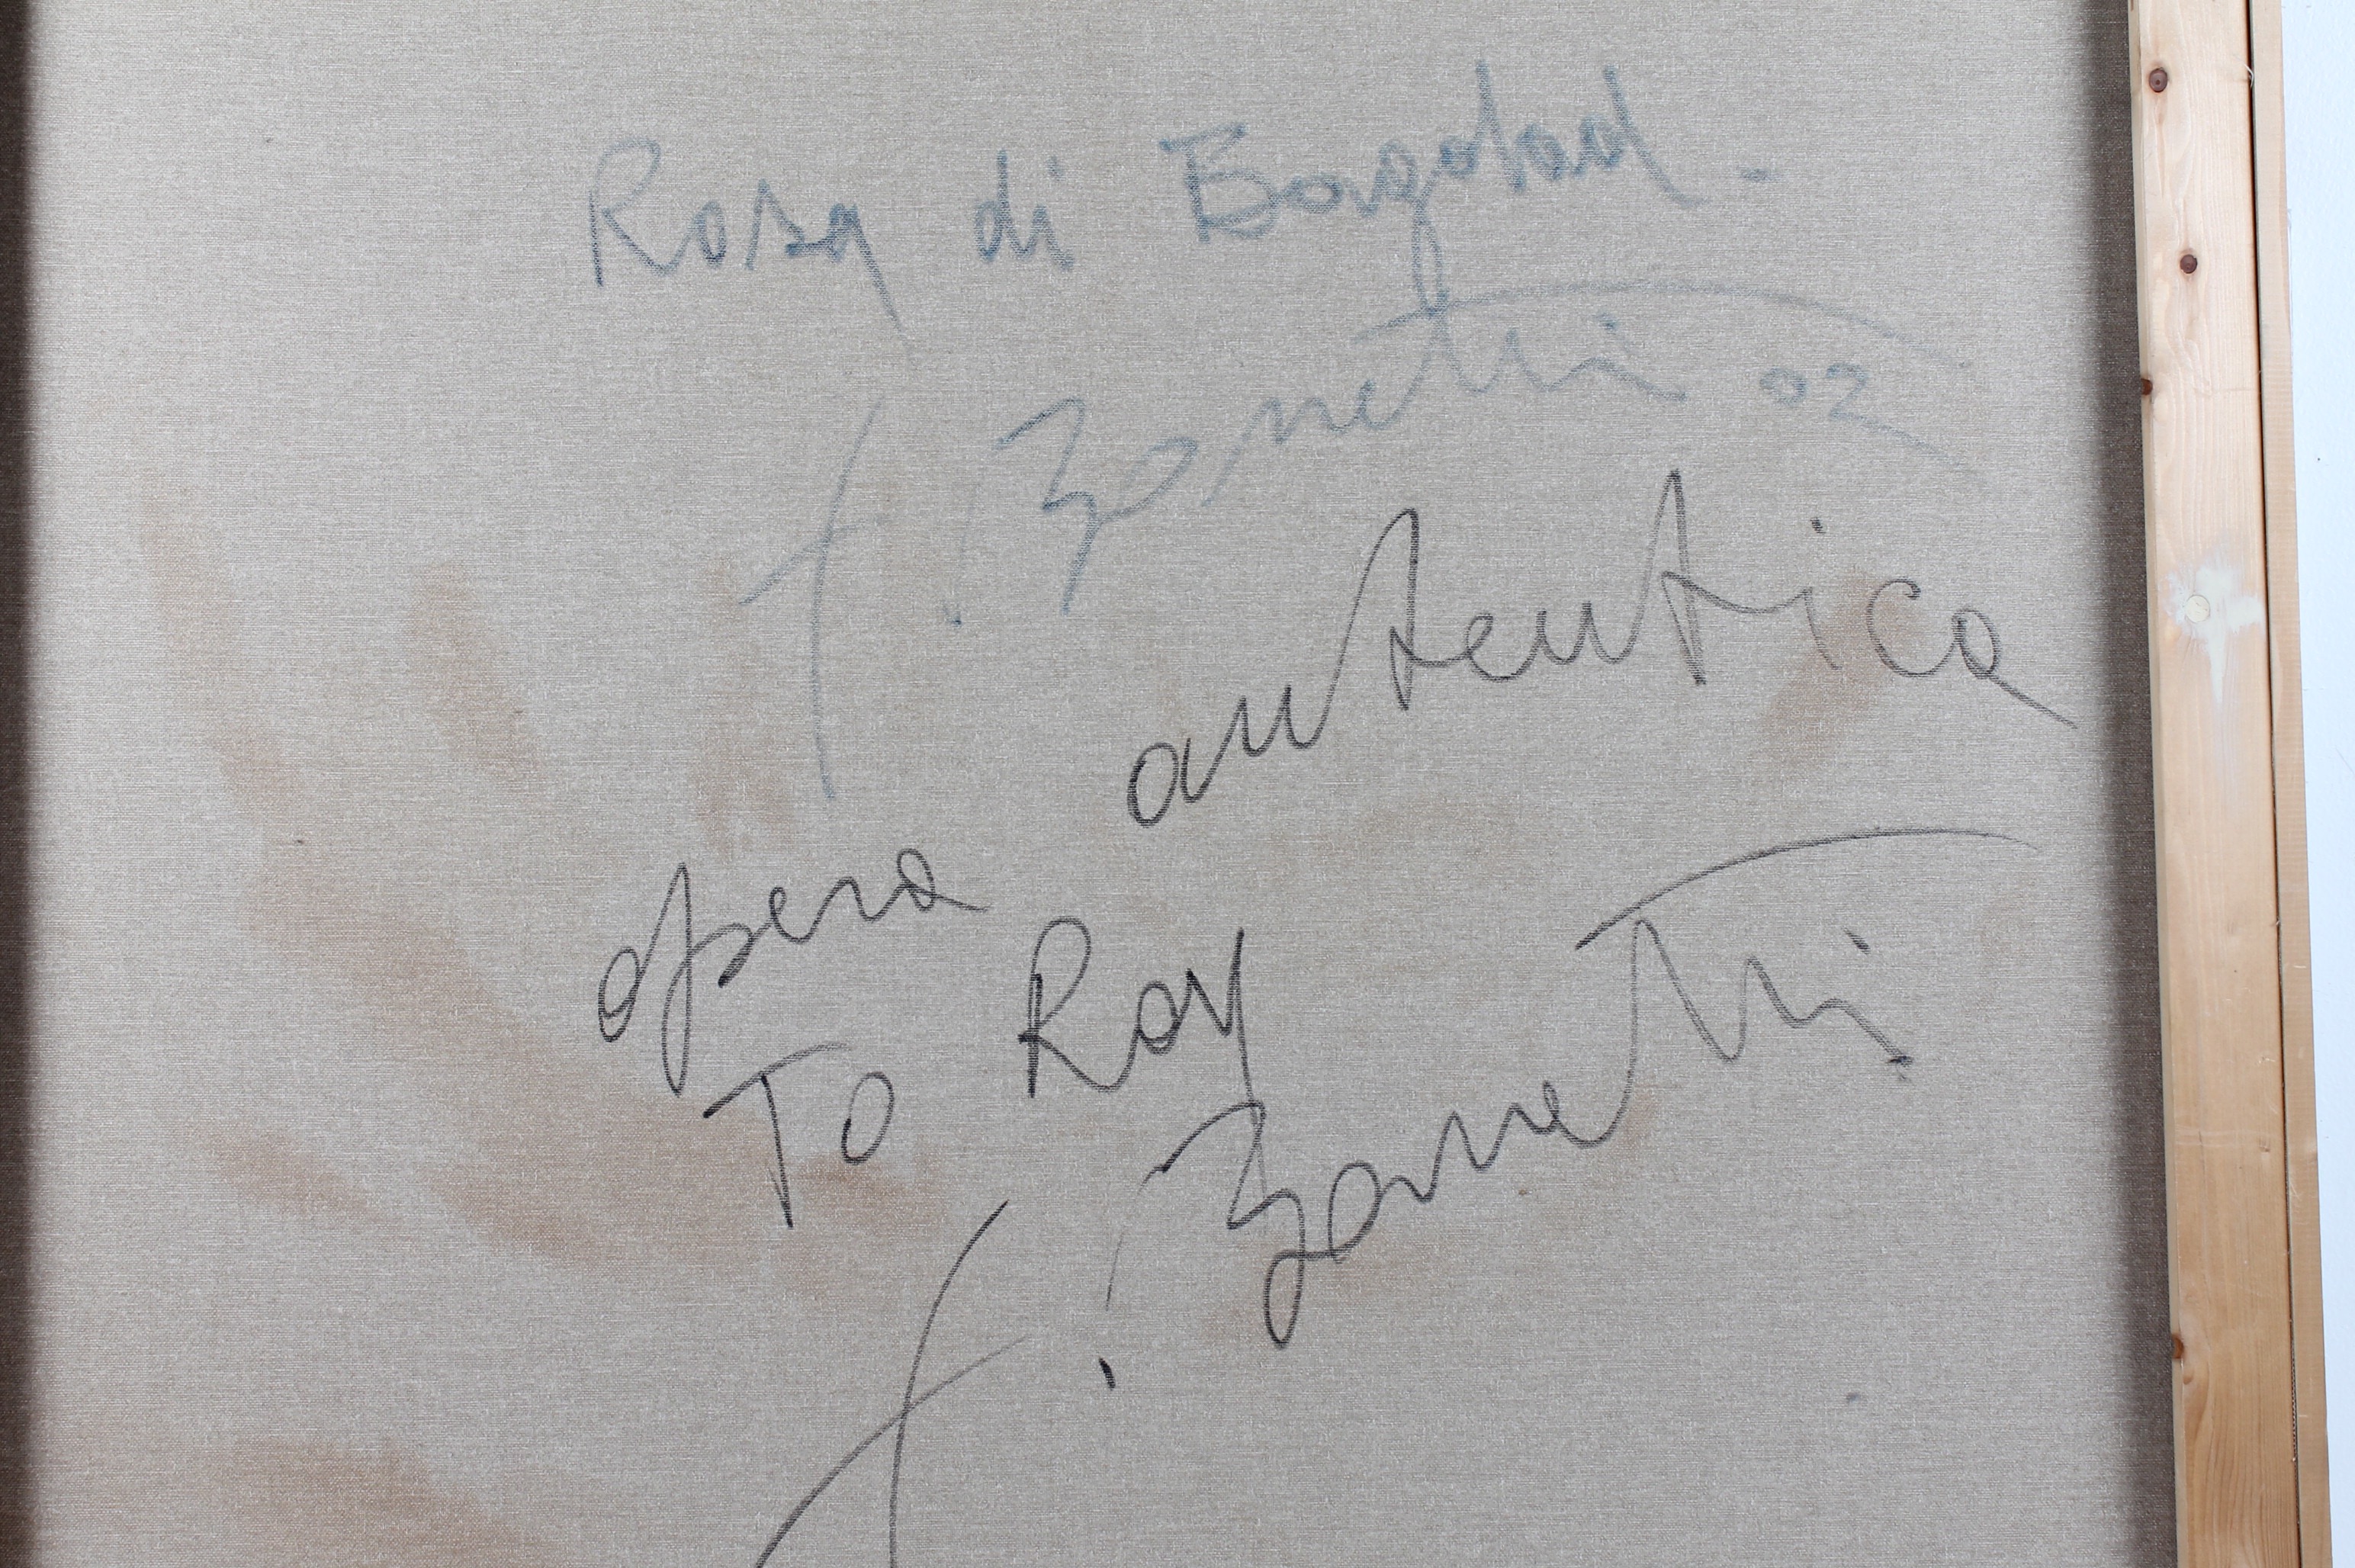 Rosa di Bagdad -
f. Zanetti 02
opera autentica
To Roy
f. Zanetti